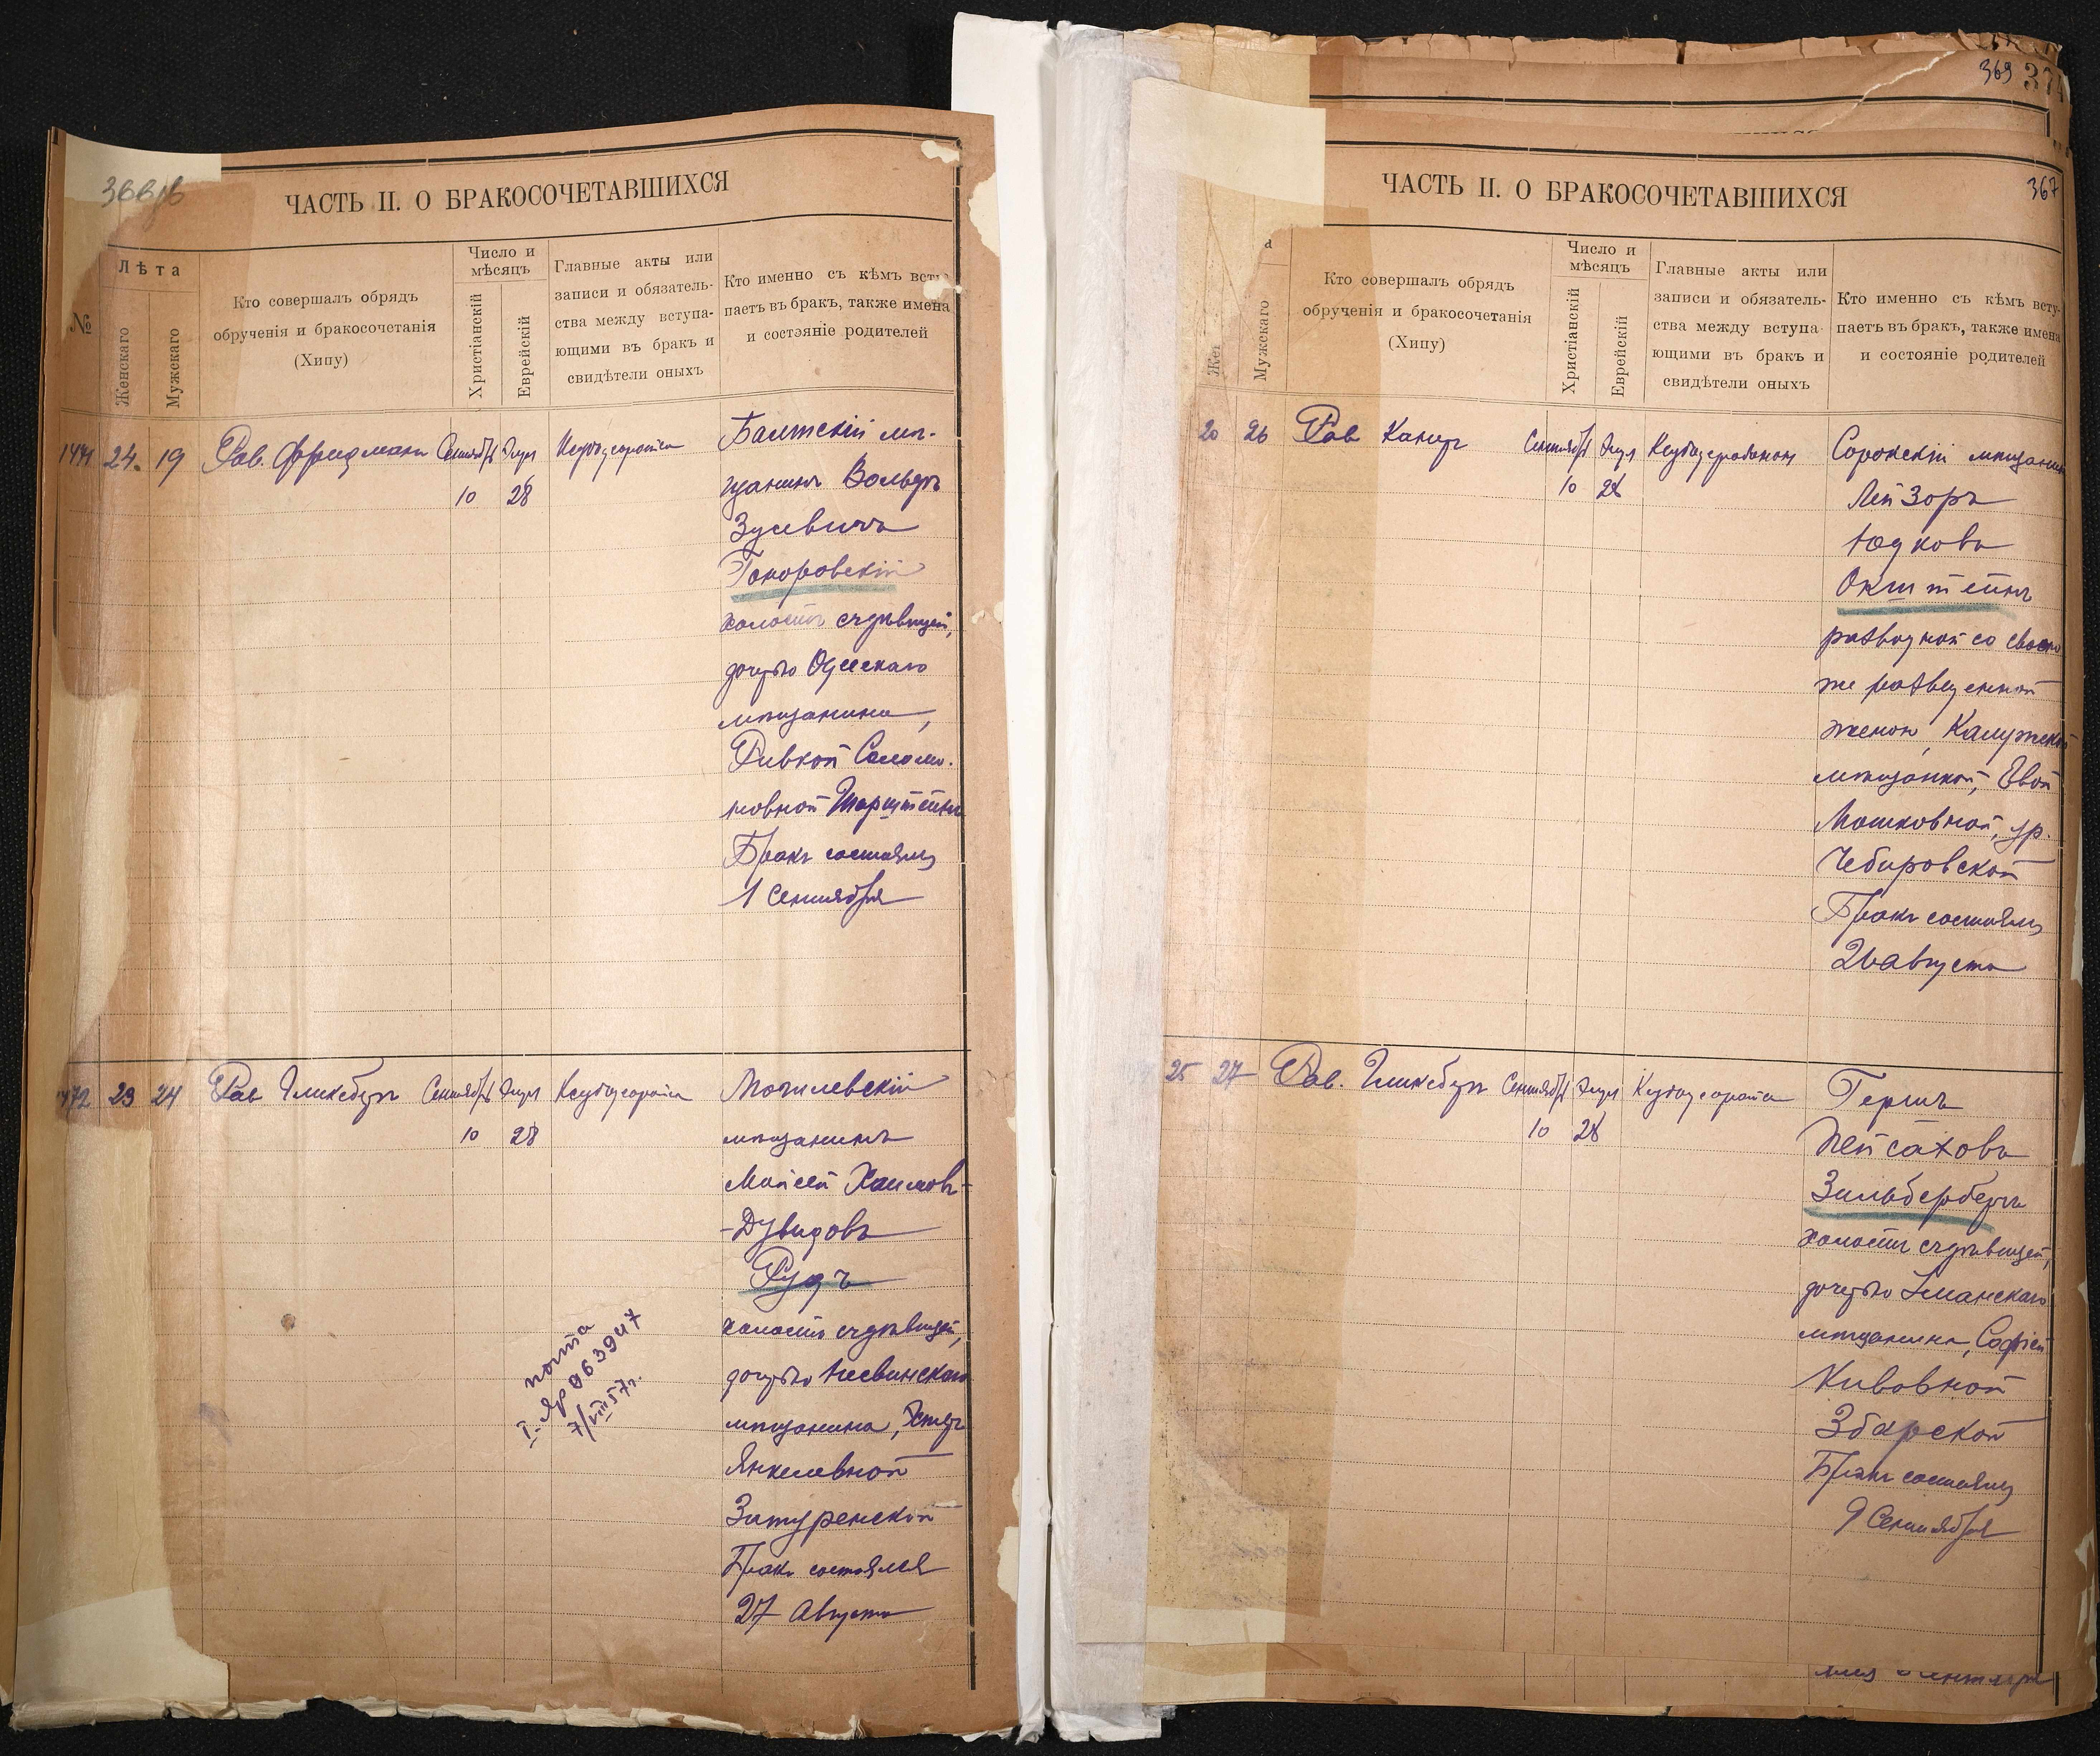 366об
ЧАСТЬ II. О БРАКОСОЧЕТАВШИХСЯ
№
Лѣта
Женскаго
Мужскаго
Кто совершалъ обрядъ
обрученія и бракосочетанія
(Хипу)
Число и
мѣсяцъ
Христіанскій
Еврейскій
Главные акты или
записи и обязатель-
ства между вступа-
ющими въ бракъ и
свидѣтели оныхъ
Кто именно съ кѣмъ всту
паетъ въ бракъ, также имена
и состояніе родителей
24 19 Рав. Фридманъ Сентябрь Элул
10 28
Балтскій мѣ-
щанинъ Вольфъ
Зусевичъ
холостъ съ дѣвицей,
дочерью Одесскаго
мѣщанина,
Ривкой Соломо-
новной
Бракъ состоялся
1 Сентября
23 24 Рав. Гликсбергъ Сентябрь Элул
10 28
Могилевскій
мѣщанинъ
Мойсей Хаимовъ-
-Дувидовъ
Рудъ
холостъ съ дѣвицей,
дочерью
мѣщанина, Эстеръ
Янкелевной
Затуренской
Бракъ состоялся
27 Августа
7/VIII 57г.
369
367
ЧАСТЬ II. О БРАКОСОЧЕТАВШИХСЯ
Мужскаго
Кто совершалъ обрядъ
обрученія и бракосочетанія
(Хипу)
Число и
мѣсяцъ
Христіанскій
Еврейскій
Главные акты или
записи и обязатель-
ства между вступа-
ющими въ бракъ и
свидѣтели оныхъ
Кто именно съ кѣмъ всту-
паетъ въ бракъ, также имена
и состояніе родителей
20 26 Рав. Сентябрь Элул
10 28
Сорокскій мѣщанинъ
Лейзоръ
Юдковъ
Окштейнъ
разводной со своею
же разведенной
женою, Калужской
мѣщанкой, Евой
Мошковной, ур.
Чебировской
Бракъ состоялся
26 августа
25 27 Рав. Гликсбергъ Сентябрь Элул
10 28
Гершъ
Пейсаховъ
Зильбербергъ
холостъ съ дѣвицей,
дочерью Уманскаго
мѣщанина, Софіей
Кивовной
Збарской
Бракъ состоялся
9 Сентября